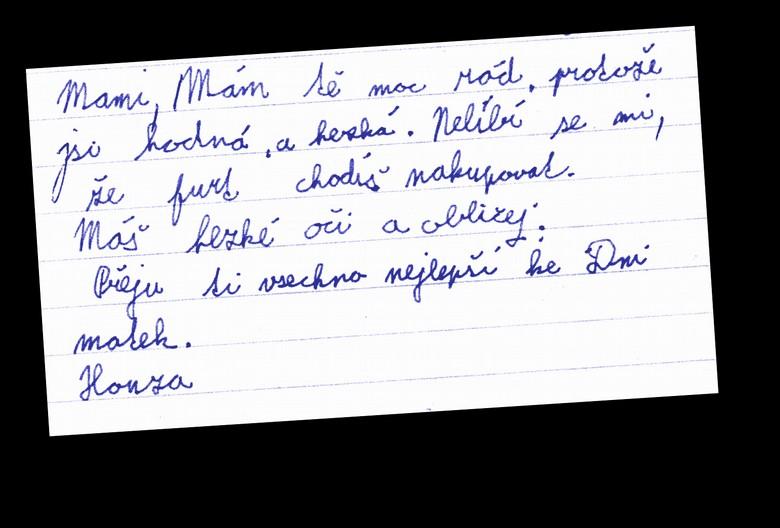 Mami, Mám tě moc rád, protože
jsi hodná, a hezká. Nelíbí se mi,
že furt chodíš nakupovat.
Máš hezké oči a obližej.
Přeju ti vsechno nejlepší ke Dni
matek.
Honza